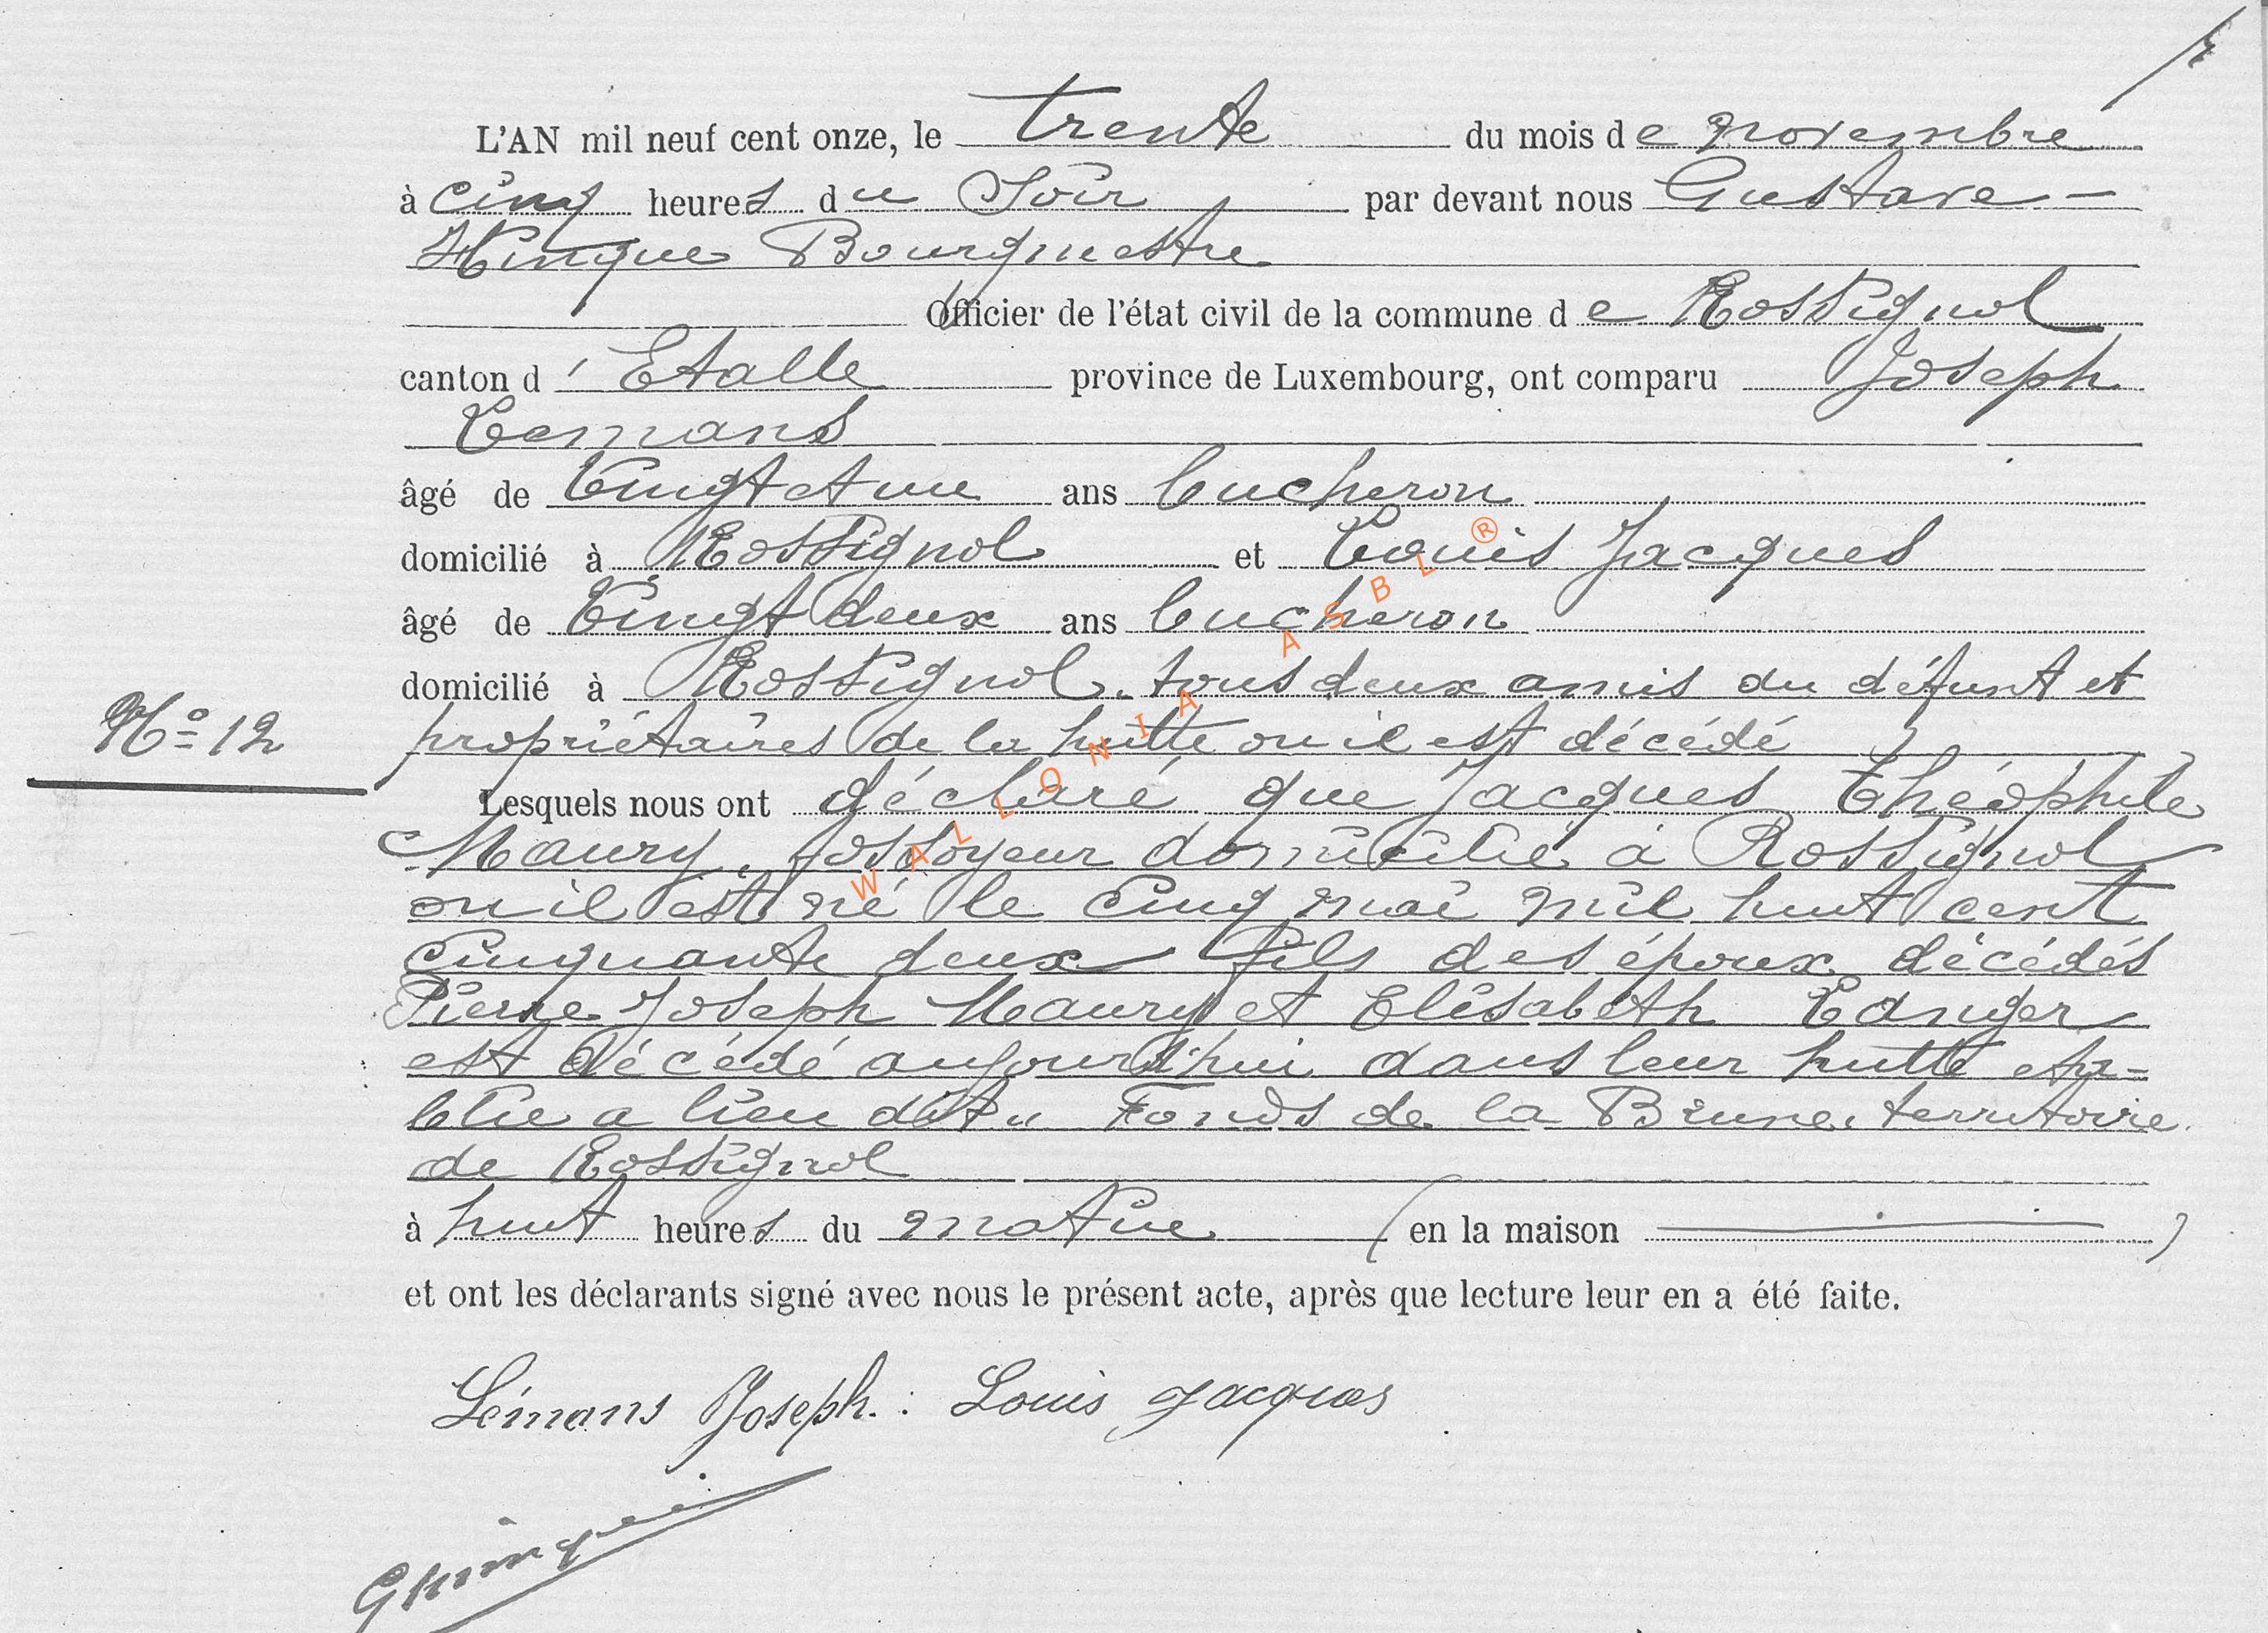 L'AN mil neuf cent onze, le trente du mois de novembre
à cinq heures du Soir par devant nous Gustave -
Hinque Bourgmestre
Officier de l'état civil de la commune de Rossignol
canton d' Etalle province de Luxembourg, ont comparu Joseph
Lemans
âgé de Vingt et un ans bucheron
domicilié à Rossignol et Louis Jacques
âgé de Vingt deux ans bucheron
domicilié à Rossignol. tous deux amis du défunt et
N° 12
propriétaires de la hutte ou il est décédé
Lesquels nous ont déclaré que Jacques Théophile
Maury, fossoyeur domicilié à Rossignol
ou il est né le cinq mai mil huit cent
cinquante deux fils des époux décédés
Pierre Joseph Maury et Elisabeth
est décédé aujourd'hui dans leur hutte éta-
blie a lieu dit " Fonds de la Brune, territoire
de Rossignol
à huit heures du matin (en la maison )
et ont les déclarants signé avec nous le présent acte, après que lecture leur en a été faite.
Lémans Joseph. : Louis Jacques
GHinque
WALLONIA ASBL ®